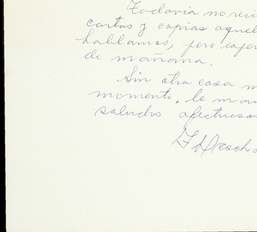 Todavía no reci
cartas y copias aquel
hablamos, pero espe
de mañana.
Sin otra cosa m
momento, le man
saludos afectuosos